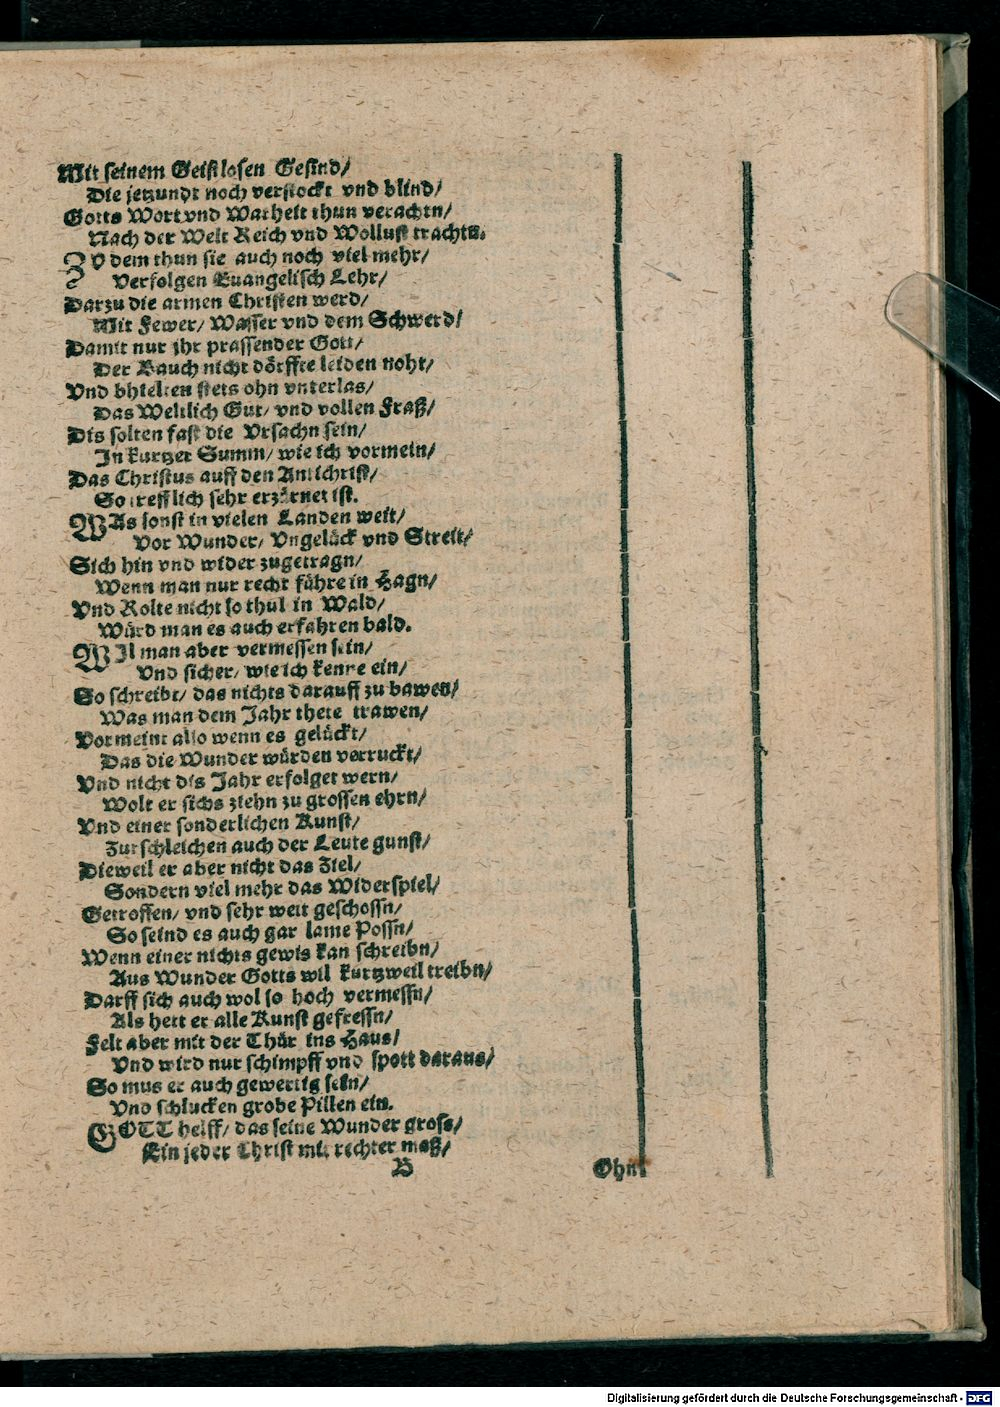 Mit seinem Geistlosen Gesind/
Die jetzundt noch verstockt vnd blind/
Gotts Wort vnd Warheit thun verachtn/
Nach der Welt Reich vnd Wollust trachtn.
ZV dem thun sie auch noch viel mehr/
Verfolgen Euangelisch Lehr/
Darzu die armen Christen werd/
Mit Fewer/ Wasser vnd dem Schwerd/
Damit nur jhr prassender Gott/
Der Bauch nicht dörffte leiden noht/
Vnd bhielten stets ohn vnterlas/
Das Weltlich Gut/ vnd vollen Fraß/
Dis solten fast die Vrsachn sein/
In kurtzer Summ/ wie ich vormein/
Das Christus auff den Antichrist/
So trefflich sehr erzörnet ist.
WAs sonst in vielen Landen weit/
Vor Wunder/ Vngelück vnd Streit/
Sich hin vnd wider zugetragn/
Wenn man nur recht führe in Hagn/
Vnd Rolte nicht so thul in Wald/
Würd man es auch erfahren bald.
WIl man aber vermessen sein/
Vnd sicher/ wie ich kenne ein/
So schreibt/ das nichts darauff zu bawen/
Was man dem Jahr thete trawen/
Vormeint also wenn es gelückt/
Das die Wunder würden verruckt/
Vnd nicht dis Jahr erfolget wern/
Wolt er sichs ziehn zu grossen ehrn/
Vnd einer sonderlichen Kunst/
Zurschleichen auch der Leute gunst/
Dieweil er aber nicht das Ziel/
Sondern viel mehr das Widerspiel/
Getroffen/ vnd sehr weit geschossn/
So seind es auch gar lame Possn/
Wenn einer nichts gewis kan schreibn/
Aus Wunder Gotts wil kurtzweil treibn/
Darff sich auch wol so hoch vermessn/
Als hett er alle Kunst gefressn/
Felt aber mit der Thür ins Haus/
Vnd wird nur schimpff vnd spott daraus/
So mus er auch gewertig sein/
Vnd schlucken grobe Pillen ein.
GOTT helff/ das seine Wunder gross/
Ein jeder Christ mit rechter maß/
B Ohn
Digitalisierung gefördert durch die Deutsche Forschungsgemeinschaft - DFG